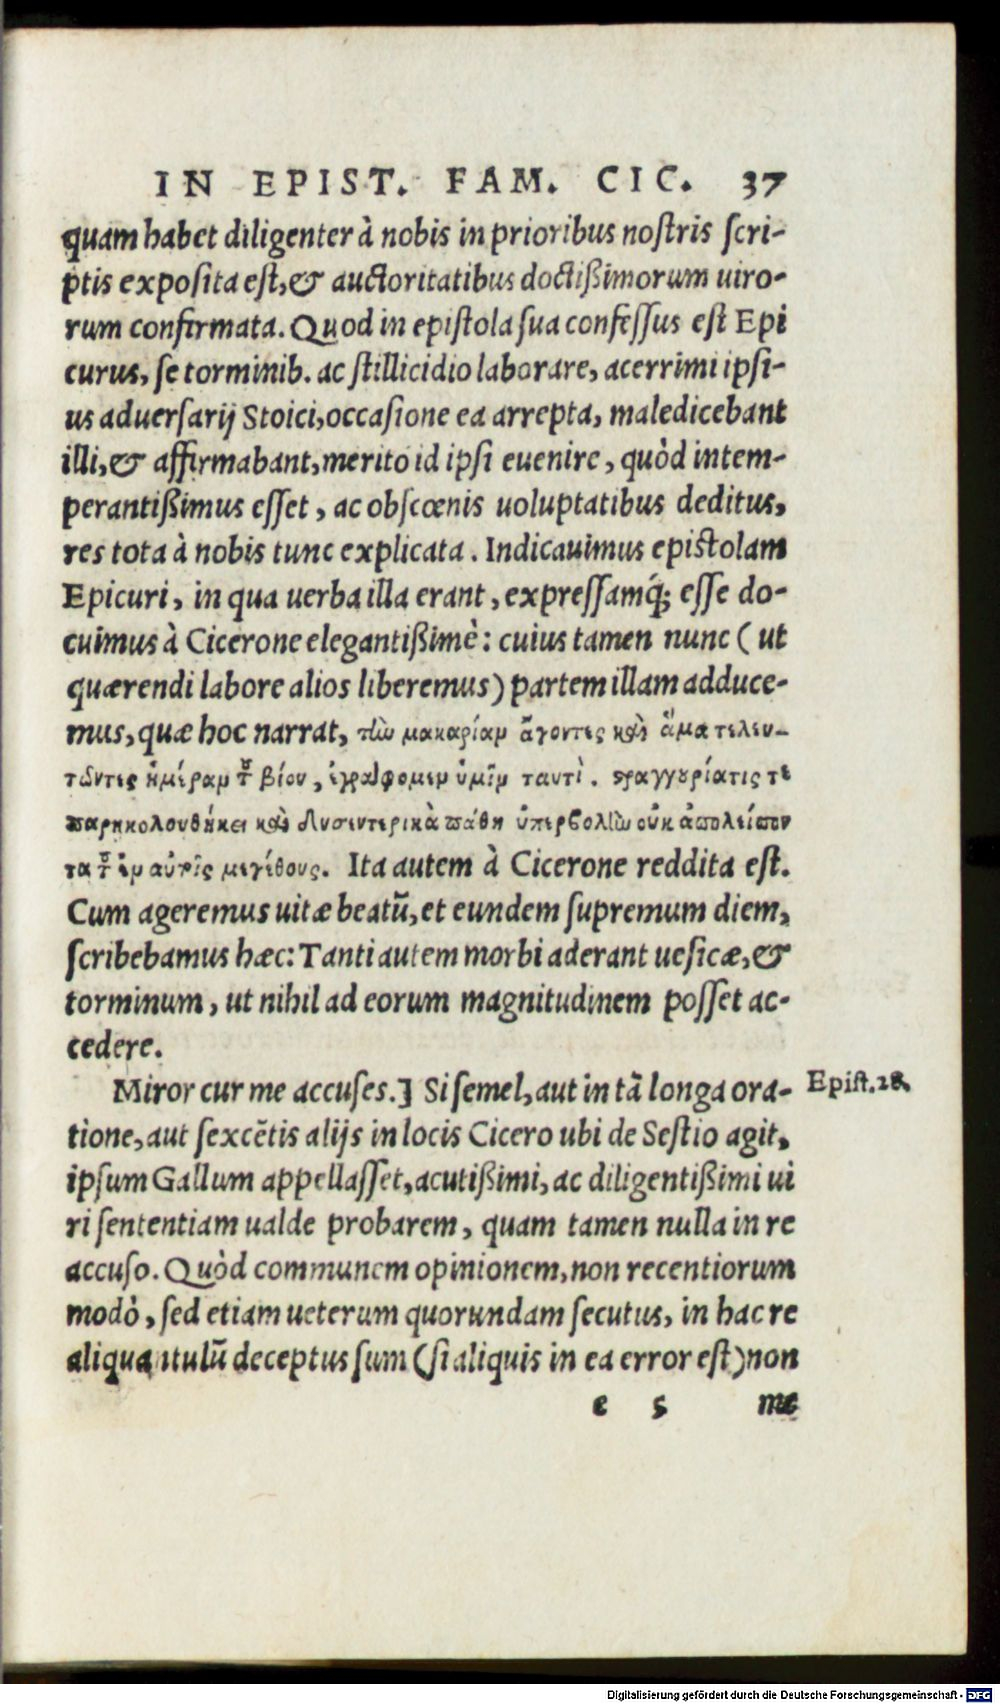 IN EPIST. FAM. CIC. 37
quam habet diligenter à nobis in prioribus noſtris ſcri-
ptis expoſita eſt, & auctoritatibus doctißimorum uiro-
rum confirmata. Quod in epiſtola ſua confeſſus eſt Epi
curus, ſe torminib. ac ſtillicidio laborare, acerrimi ipſi-
us aduerſarij Stoici, occaſione ea arrepta, maledicebant
illi, & affirmabant, merito id ipſi euenire, quòd intem-
perantißimus eſſet, ac obſcœnis uoluptatibus deditus,
res tota à nobis tunc explicata. Indicauimus epiſtolam
Epicuri, in qua uerba illa erant, expreſſamq́; eſſe do-
cuimus à Cicerone elegantißimè: cuius tamen nunc (ut
quærendi labore alios liberemus) partem illam adduce-
mus, quæ hoc narrat, τὼ μακαρίαμ ἄγοντες καὶ ἅμα τελευ-
τῶντες ἡμέραμ τ͂ βίου, ἐγράφομεμ ὑμῖμ ταυτὶ. ϛραγγουρίατις τε
παρηκολουθήκει καὶ δυσεντερικὰ πάθη ὑπερβολὼ οὐκ ἀπολείπον
τα τ͂ ἐμ αὐτοῖς μεγέθους. Ita autem à Cicerone reddita eſt.
Cum ageremus uitæ beatū, et eundem ſupremum diem,
ſcribebamus hæc: Tanti autem morbi aderant ueſicæ, &
torminum, ut nihil ad eorum magnitudinem poſſet ac-
cedere.
Miror cur me accuſes.] Si ſemel, aut in tā longa ora- Epiſt. 28.
tione, aut ſexcētis alijs in locis Cicero ubi de Seſtio agit,
ipſum Gallum appellaſſet, acutißimi, ac diligentißimi ui
ri ſententiam ualde probarem, quam tamen nulla in re
accuſo. Quòd communem opinionem, non recentiorum
modò, ſed etiam ueterum quorundam ſecutus, in hac re
aliquantulū deceptus ſum (ſi aliquis in ea error eſt) non
e 5 me
Digitalisierung gefördert durch die Deutsche Forschungsgemeinschaft - DFG